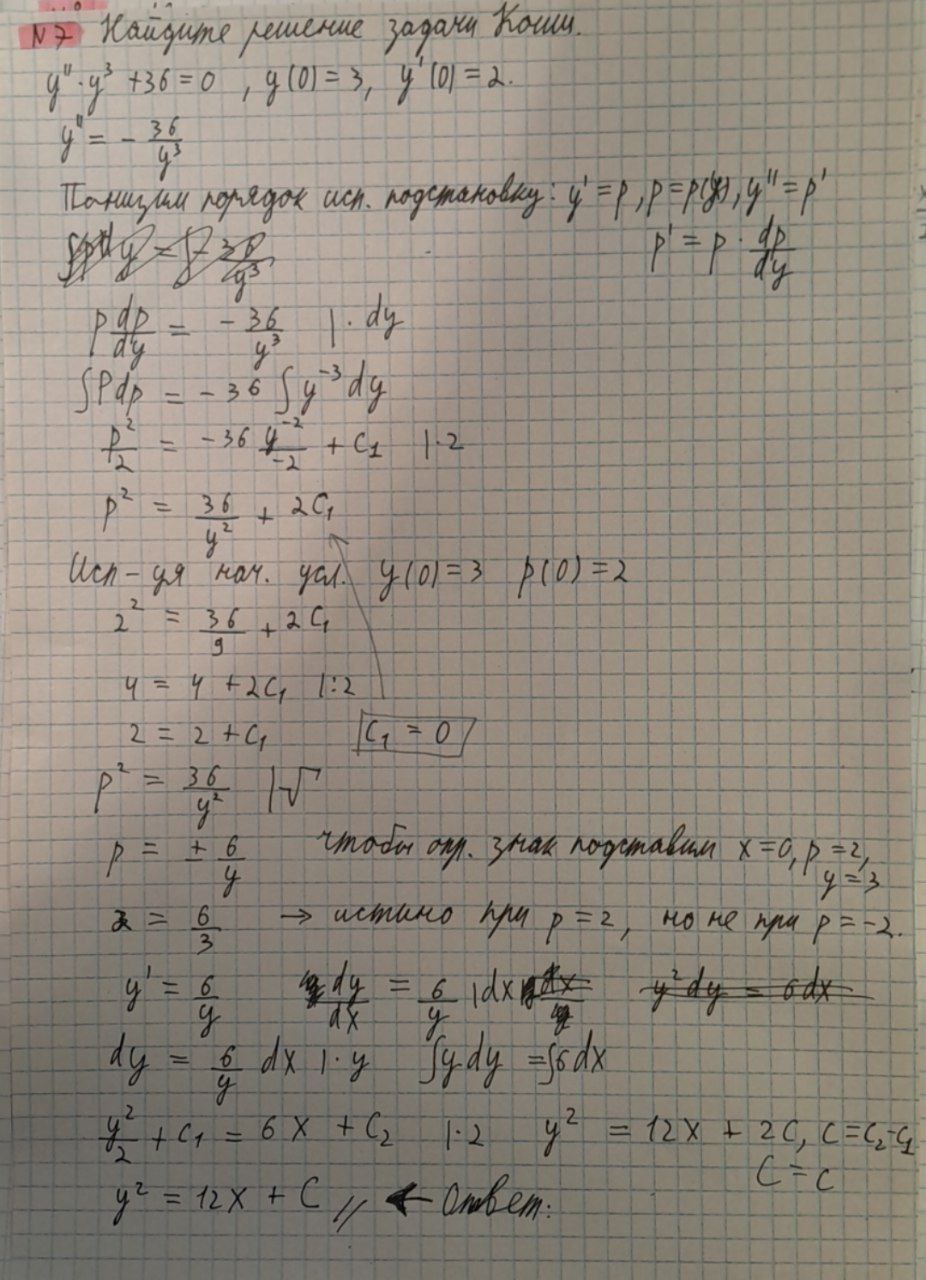 N7 Найдите решение задачи Коши.
y''·y³ + 36 = 0 , y(0) = 3, y'(0) = 2.
y'' = - 36/y³
Понизим порядок исп. подстановку: y' = p , p = p(y), y'' = p'
p' = p · dp/dy
p dp/dy = - 36/y³ |· dy
∫P dp = - 36 ∫ y⁻³ dy
p²/2 = -36 y⁻²/-2 + C₁ |·2
p² = 36/y² + 2C₁
Исп-уя нач. усл. y(0) = 3 p(0) = 2
2² = 36/9 + 2C₁
4 = 4 + 2C₁ |:2
2 = 2 + C₁ C₁ = 0
p² = 36/y² |√
p = ± 6/y чтобы опр. знак подставим x = 0, p = 2,
y = 3
2 = 6/3 → истино при p = 2, но не при p = -2.
y' = 6/y dy/dx = 6/y | dx y²dy = 6dx
dy = 6/y dx |· y ∫y dy = ∫6 dx
y²/2 + C₁ = 6x + C₂ |·2 y² = 12x + 2C, C = C₂-C₁
C = C
y² = 12x + C // ← Ответ: